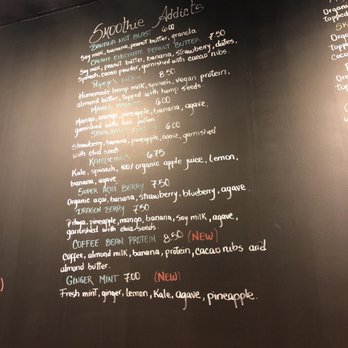 Smoothie Addicts
Banana Nut Blast 6.00
Soy milk, banana, peanut butter, granola
Peanut Butter 7.50
Soy milk, peanut butter, banana, strawberry, dates,
Splash, cacao powder, garnished with cacao nibs.
8.50
Homemade hemp milk, spinach, vegan protein,
almond butter, topped with hemp seeds
6.00
Mango, orange, pineapple, banana, agave,
garnished with bee pollen
6.00
Strawberry, banana, pineapple, garnished
with chia seeds
6.75
Kale, spinach, 100% organic apple juice, lemon,
banana, agave
Super Acai Berry 7.50
Organic acai, banana, strawberry, blueberry, agave.
Dragon Berry 7.50
Pitaya, pineapple, mango, banana, soy milk, agave,
garnished with chia seeds.
Coffee Bean Protein 8.50 (NEW)
Coffee, almond milk, banana, protein, cacao nibs and
almond butter.
Ginger Mint 7.00 (NEW)
Fresh mint, ginger, lemon, Kale, agave, pineapple.